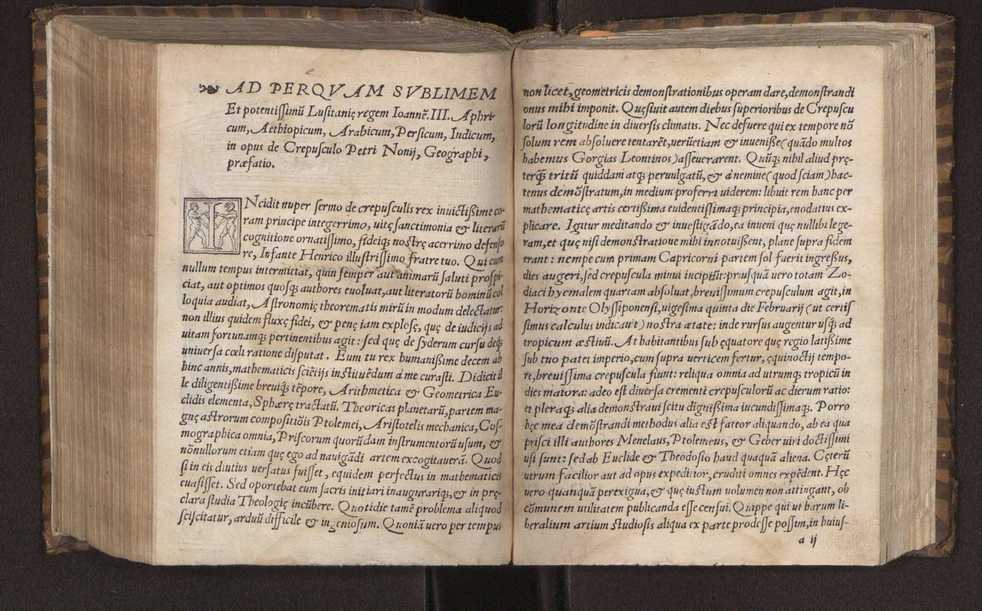 AD PERQVAM SVBLIMEM
Et potentissimũ Lusitanię regem Ioannẽ. III. Aphri
cum, Aethiopicum, Arabicum, Persicum, Indicum,
in opus de Crepusculo Petri Nonij, Geographi,
præfatio.
INcidit nuper sermo de crepusculis rex inuictißime co-
ram principe integerrimo, uitę sanctimonia & literarũ
cognitione ornatissimo, fideiq; nostrę acerrimo defenso
re, Infante Henrico illustrissimo fratre tuo. Qui cum
nullum tempus intermittat, quin semper aut animarũ saluti prospi
ciat, aut optimos quosq; authores euoluat, aut literatorũ hominũ col
loquia audiat, Astronomię theorematis mirũ in modum delectatur:
non illius quidem fluxę fidei, & penę iam explosę, quę de iudicijs ad
uitam fortunamq; pertinentibus agit: sed quę de syderum cursu deq;
uniuersa cœli ratione disputat. Eum tu rex humanißime decem ab
hinc annis, mathematicis sciẽtijs instituẽdum a me curasti. Didicit il
le diligentißime breuiq; tẽpore, Arithmetica & Geometrica Eu-
clidis elementa, Sphærę tractatũ, Theoricas planetarũ, partem ma-
gnę astrorum compositiõis Ptolemei, Aristotelis mechanica, Cos-
mographica omnia, Priscorum quorũdam instrumentorũ usum, &
nõnullorum etiam quę ego ad nauigãdi artem excogitauerã. Quod
si in eis diutius uersatus fuisset, equidem perfectus in mathematicis
euasisset. Sed oportebat eum sacris initiari inaugurariq;, & in prę-
clara studia Theologię incũbere. Quotidie tamẽ problema aliquod
sciscitatur, arduũ difficile & ingeniosum. Quoniã uero per tempus
non licet, geometricis demonstrationibus operam dare, demonstrandi
onus mihi imponit. Quęsiuit autem diebus superioribus de Crepuscu
lorũ longitudine in diuersis climatis. Nec defuere qui ex tempore nõ
solum rem absoluere tentarẽt, uerũetiam & inuenisse (quãdo multos
habemus Gorgias Leontinos) asseuerarent. Quũq; nihil aliud prę-
terq̃ tritũ quiddam atq; peruulgatũ, & a nemine (quod sciam) hac-
tenus demõstratum, in medium proferri uiderem: libuit rem hanc per
mathematicę artis certißima euidentissimaq; principia, enodatius ex-
plicare. Igitur meditando & inuestigãdo, ea inueni quę nullibi lege-
ram, et quę nisi demonstratione mihi innotuißent, plane supra fidem
erant: nempe cum primam Capricorni partem sol fuerit ingreßus,
dies augeri, sed crepuscula minui incipiũt: prusquã uero totam Zo-
diaci hyemalem quartam absoluat, breuissimum crepusculum agit, in
Horizonte Olyssiponensi, uigesima quinta die Februarij (ut certis
simus calculus indicauit) nostra ætate: inde rursus augentur usq; ad
tropicum æstiuũ. At habitantibus sub ęquatore quę regio latißime
sub tuo patet imperio, cum supra uerticem fertur, ęquinoctij tempo-
re, breuissima crepuscula fiunt: reliqua omnia ad utrumq; tropicũ in
dies maiora: adeo est diuersa crementi crepusculorũ ac dierum ratio:
et pleraq; alia demonstraui scitu dignißima iucundissimaq;. Porro
hęc mea demõstrandi methodus alia est fateor aliquando, ab ea qua
prisci illi authores Menelaus, Ptolemeus, & Geber uiri doctissimi
usi sunt: sed ab Euclide & Theodosio haud quaquã aliena. Cęterũ
utrum facilior aut ad opus expeditior, eruditi omnes expẽdent. Hęc
uero quatiquã perexigua, & quę iustum uolumen non attingant, ob
cõmunem utilitatem publicanda esse censui. Quippe qui ut harum li-
beralium artium studiosis aliqua ex parte prodesse possim, in huius-
a ij